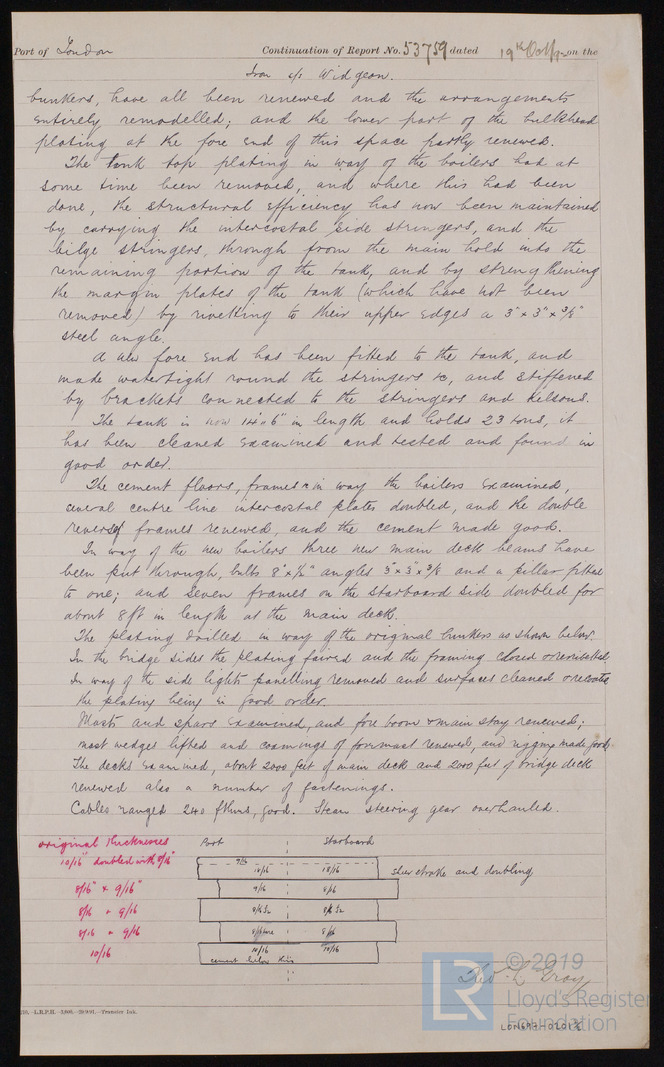 Port of London Continuation of Report No. 53759 dated 19th Oct/ on the
Iron s/s Widgeon.
bunkers, have all been renewed and the arrangements
entirely remodelled; and the lower part of the bulkhead
plating at the fore end of this space partly renewed.
The tank top plating in way of the boilers had at
some time been removed, and where this had been
done, the structural efficiency has now been maintained
by carrying the intercostal side stringers, and the
bilge stringers, through from the main hold into the
remaining portion of the tank, and by strengthening
the margin plates of the tank (which have not been
removed) by rivetting to their upper edges a 3" x 3" x 3/8"
steel angle.
A new fore end has been fitted to the tank, and
made watertight round the stringers &c, and stiffened
by brackets connected to the stringers and kelsons.
The tank is now 14' 6" in length and holds 23 tons, it
has been cleaned examined and tested and found in
good order.
The cement floors, frames &c in way the boilers examined,
several centre line intercostal plates doubled, and the double
reversed frames renewed, and the cement made good.
In way of the new boilers three new main deck beams have
been put through, bulbs 8" x 1/2" angles 3" x 3" x 3/8 and a pillar fitted
to one; and seven frames on the starboard side doubled for
about 8ft in length at the main deck.
The plating drilled in way of the original bunkers as shown below.
In the bridge sides the plating faired and the framing closed & rerivetted,
In way of the side lights panelling removed and surfaces cleaned & recoated
the plating being in good order.
Masts and spars examined, and fore boom & main stay renewed;
mast wedges lifted and coamings of foremast renewed, and rigging made good.
The decks examined, about 2000 feet of main deck and 2000 feet of bridge deck
renewed also a number of fastenings.
Cables ranged 240 fthms, good. Steam steering gear overhauled.
original thicknesses Port Starboard
10/16" doubled with 9/16" 9/16
10/16 10/16 sheerstrake and doubling
8/16" & 9/16" 9/16 8/16
8/16 & 9/16
8/16 & 9/16 8/16
10/16 10/16 10/16
cement below this
Theo. C. Gray
© 2019
LR Lloyd's Register
Foundation
L.R.P.H. Transfer Ink.